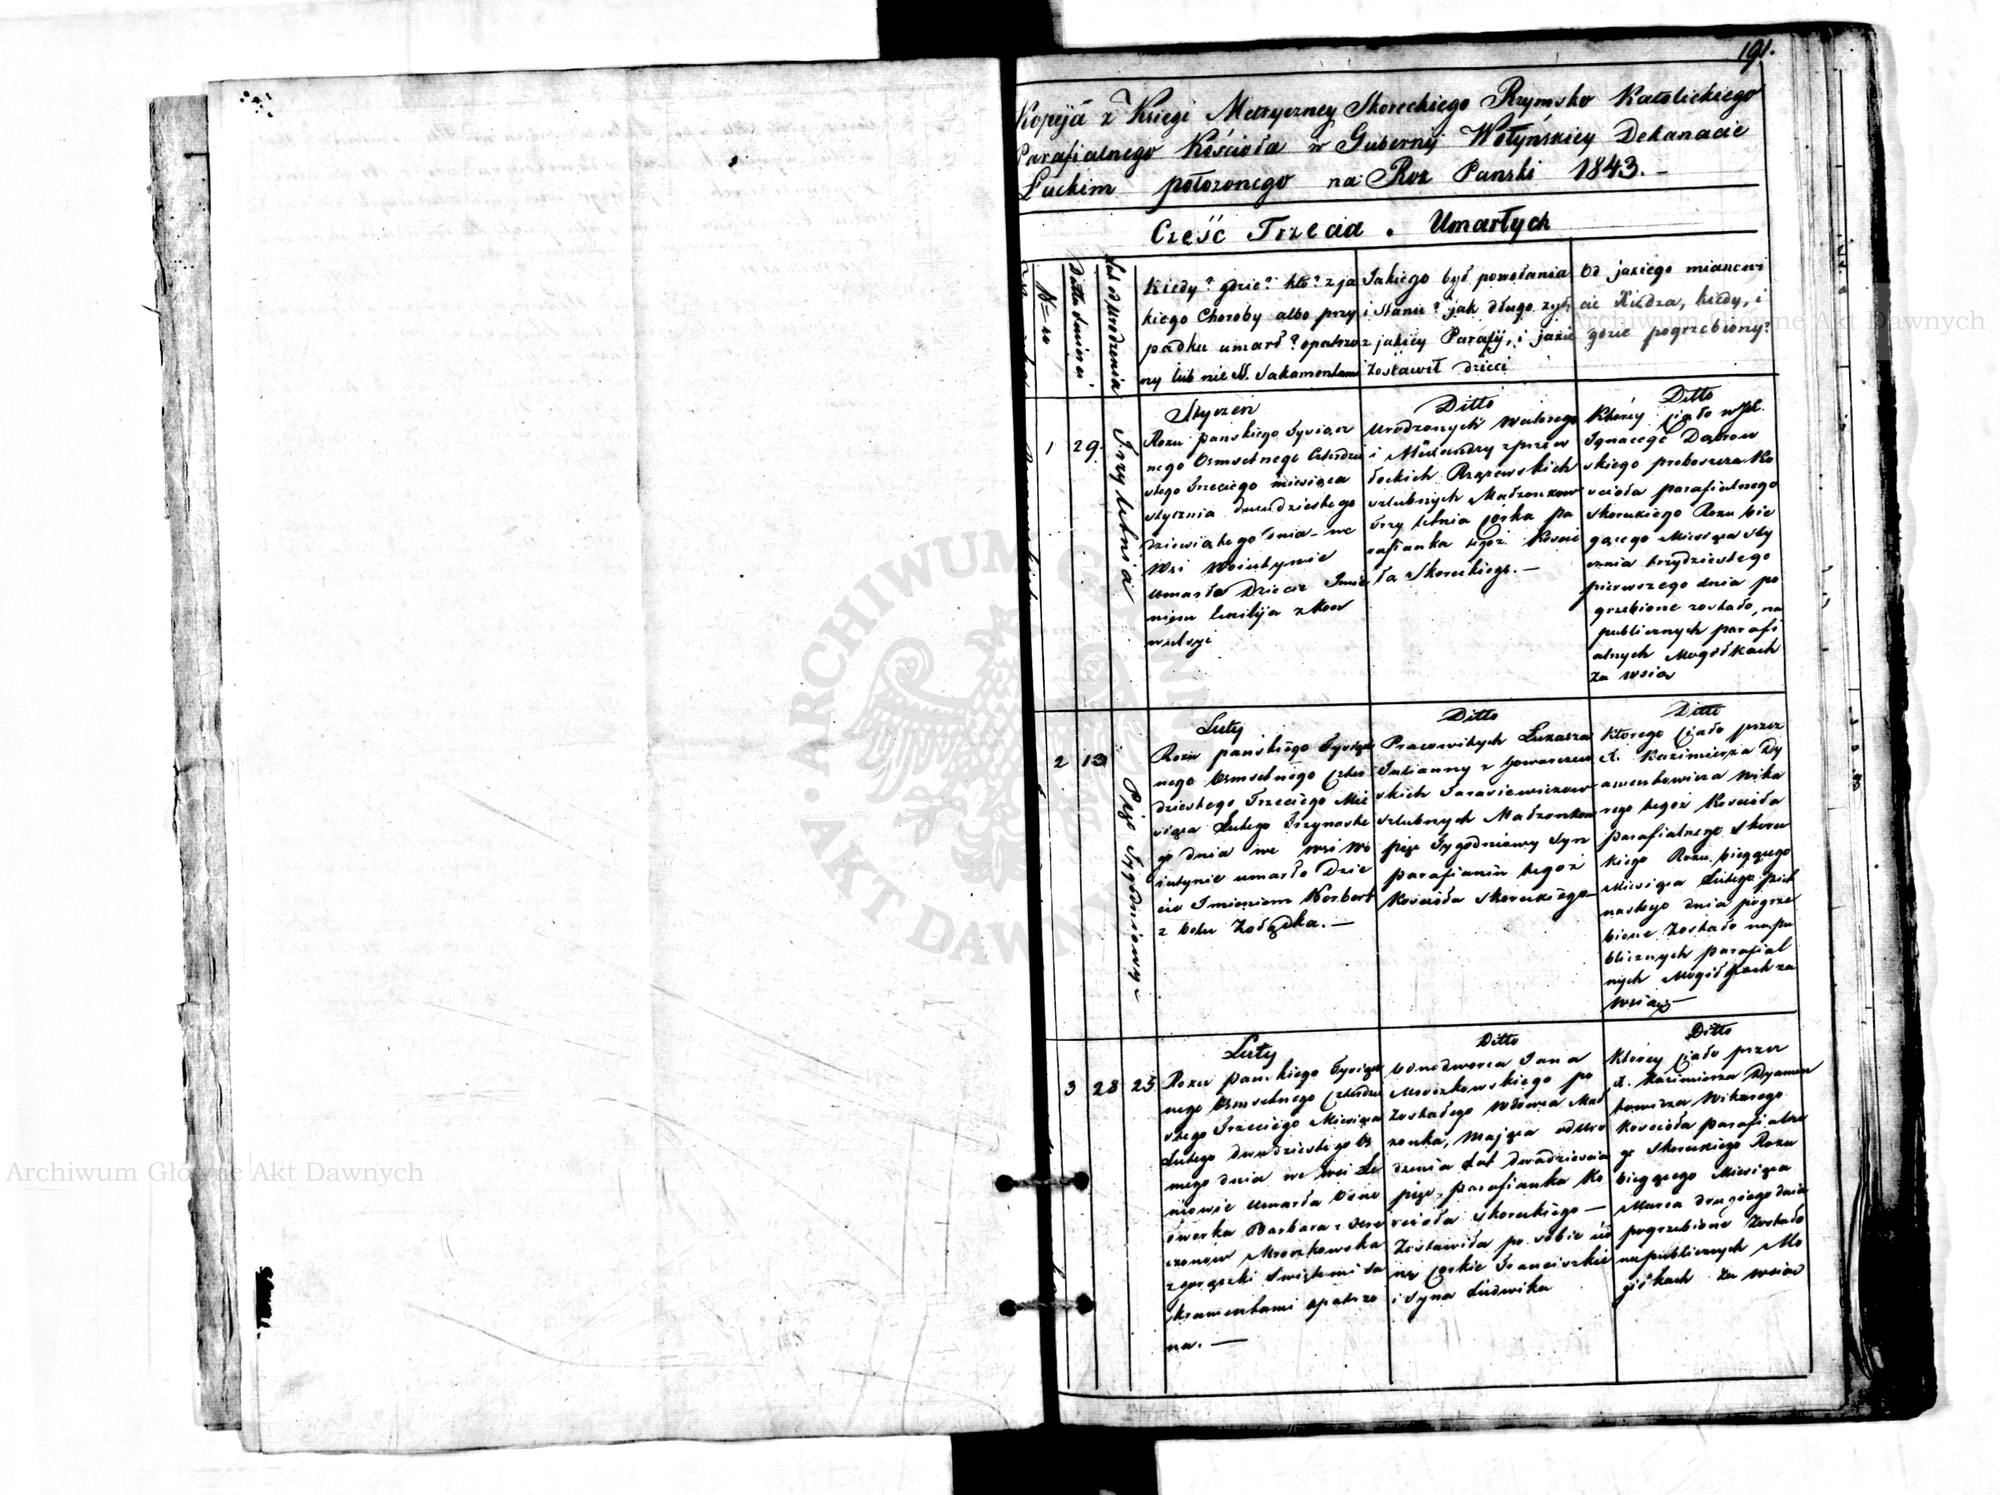 191.
Kopija z Księgi Metryczney Skoreckiego Rzymsko Katolickiego
Parafialnego Kościoła w Gubernij Wołyńskiey Dekanacie
Łuckim położonego na Rok Panski 1843. –
Cześć Trzecia . Umarłych
N=ro
Datta śmierci
Lat od Urodzenia
Kiedy? gdzie? kto? z ja
kiego Choroby albo przy
padku umarł? opatrzo
ny lub nie SS. Sakamentami
Jakiego był powołania
i Stanu? jak długo żył?
z jakiey Parafij, i jakie
zostawił dzieci
Od jakiego mianowi
cie Xiędza, kiedy, i
gdzie pogrzebiony?
1
29.
Trzyletnia
Styczeń
Roku pańskiego Tysiącz
nego Osmsetnego Czterdzie
stego Trzeciego miesiąca
stycznia dwudziestego
dziewiątego dnia – we
Wsi Woiutynie
umarła Dziecie Imie
niem Emilija z kon
wulsyi
Ditto
Urodzonych Walerego
i Alexandry z przew
łockich Rzążewskich
szlubnych Małżonkow
trzy letnia Córka pa
rafianka tegoż Kościo
ła Skoreckiego. –
Ditto
Ktorey Ciało w JX.
Ignacego Dąbrow
skiego proboszcza Ko
scioła parafialnego
Skoreckiego Roku bie
gącego Miesiąca Sty
cznia trzydziestego
pierwszego dnia po
grzebione zostało, na
publicznych parafi
alnych Mogiłkach
za wsią
2
13
Pięc Tygodniowy –
Luty
Roku pańskiego Tysiącz
nego Osmsetnego Czter
dziestego Trzeciego Mie
siąca Lutego Trzynaste
go dnia we wsi Wo
iutynie umarło Dzie
cie Imieniem Norbert
z bolu Żołądka. –
Ditto
Pracowitych Łukasza
Julianny z
skich Tarasiewiczow
szlubnych Małżonkow
pięc Tygodniowy Syn
parafianin tegoż
Kościoła Skoreckiego
Ditto
Ktorego Ciało przez
X. Kazimierza Dy
amentowicza Wika
rego tegoż Kościoła
parafialnego Skorec
kiego Roku bieggucego
Miesiąca Lutego pięt
nastego dnia pogrze
bione Zostało na pu
blicznych parafial
nych Mogiłkach za
Wsią –
3
28
25
Luty
Roku pańskiego Tysiącz
nego Osmsetnego Czterdzie
stego Trzeciego Miesiąca
Lutego dwudziestego Os
mego dnia we wsi
umarła Odno
dworka Barbara z
Mroczkowska
z gorączki Swiętemi Sa
kramentami opatrzo
na. –
Ditto
Odnodworca Jana
Mroczkowskiego po
zostałego Wdowca Mał
żonka, mająca od Uro
dzenia Lat dwadzieścia
pięc, parafianka Ko
scioła Skoreckiego –
Zostawiła po sobie
Córkie Franciszkie
i Syna Ludwika
Ditto
Ktorey Ciało przez
X. Kazimierza Dyamen
towicza Wikarego
Kościoła parafialne
go Skoreckiego Roku
bieggcego Miesiąca
Marca drugiego dnia
pogrzebione Zostało
na publicznych Mo
giłkach za wsią
Archiwum Główne Akt Dawnych
Archiwum Główne Akt Dawnych
ARCHIWUM GŁÓWNE
AKT DAWNYCH